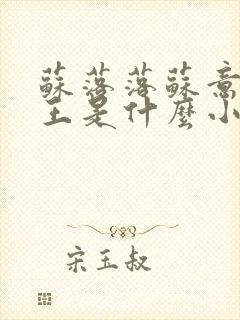 蘇落落蘇意
王是什麼小
宋玉叔